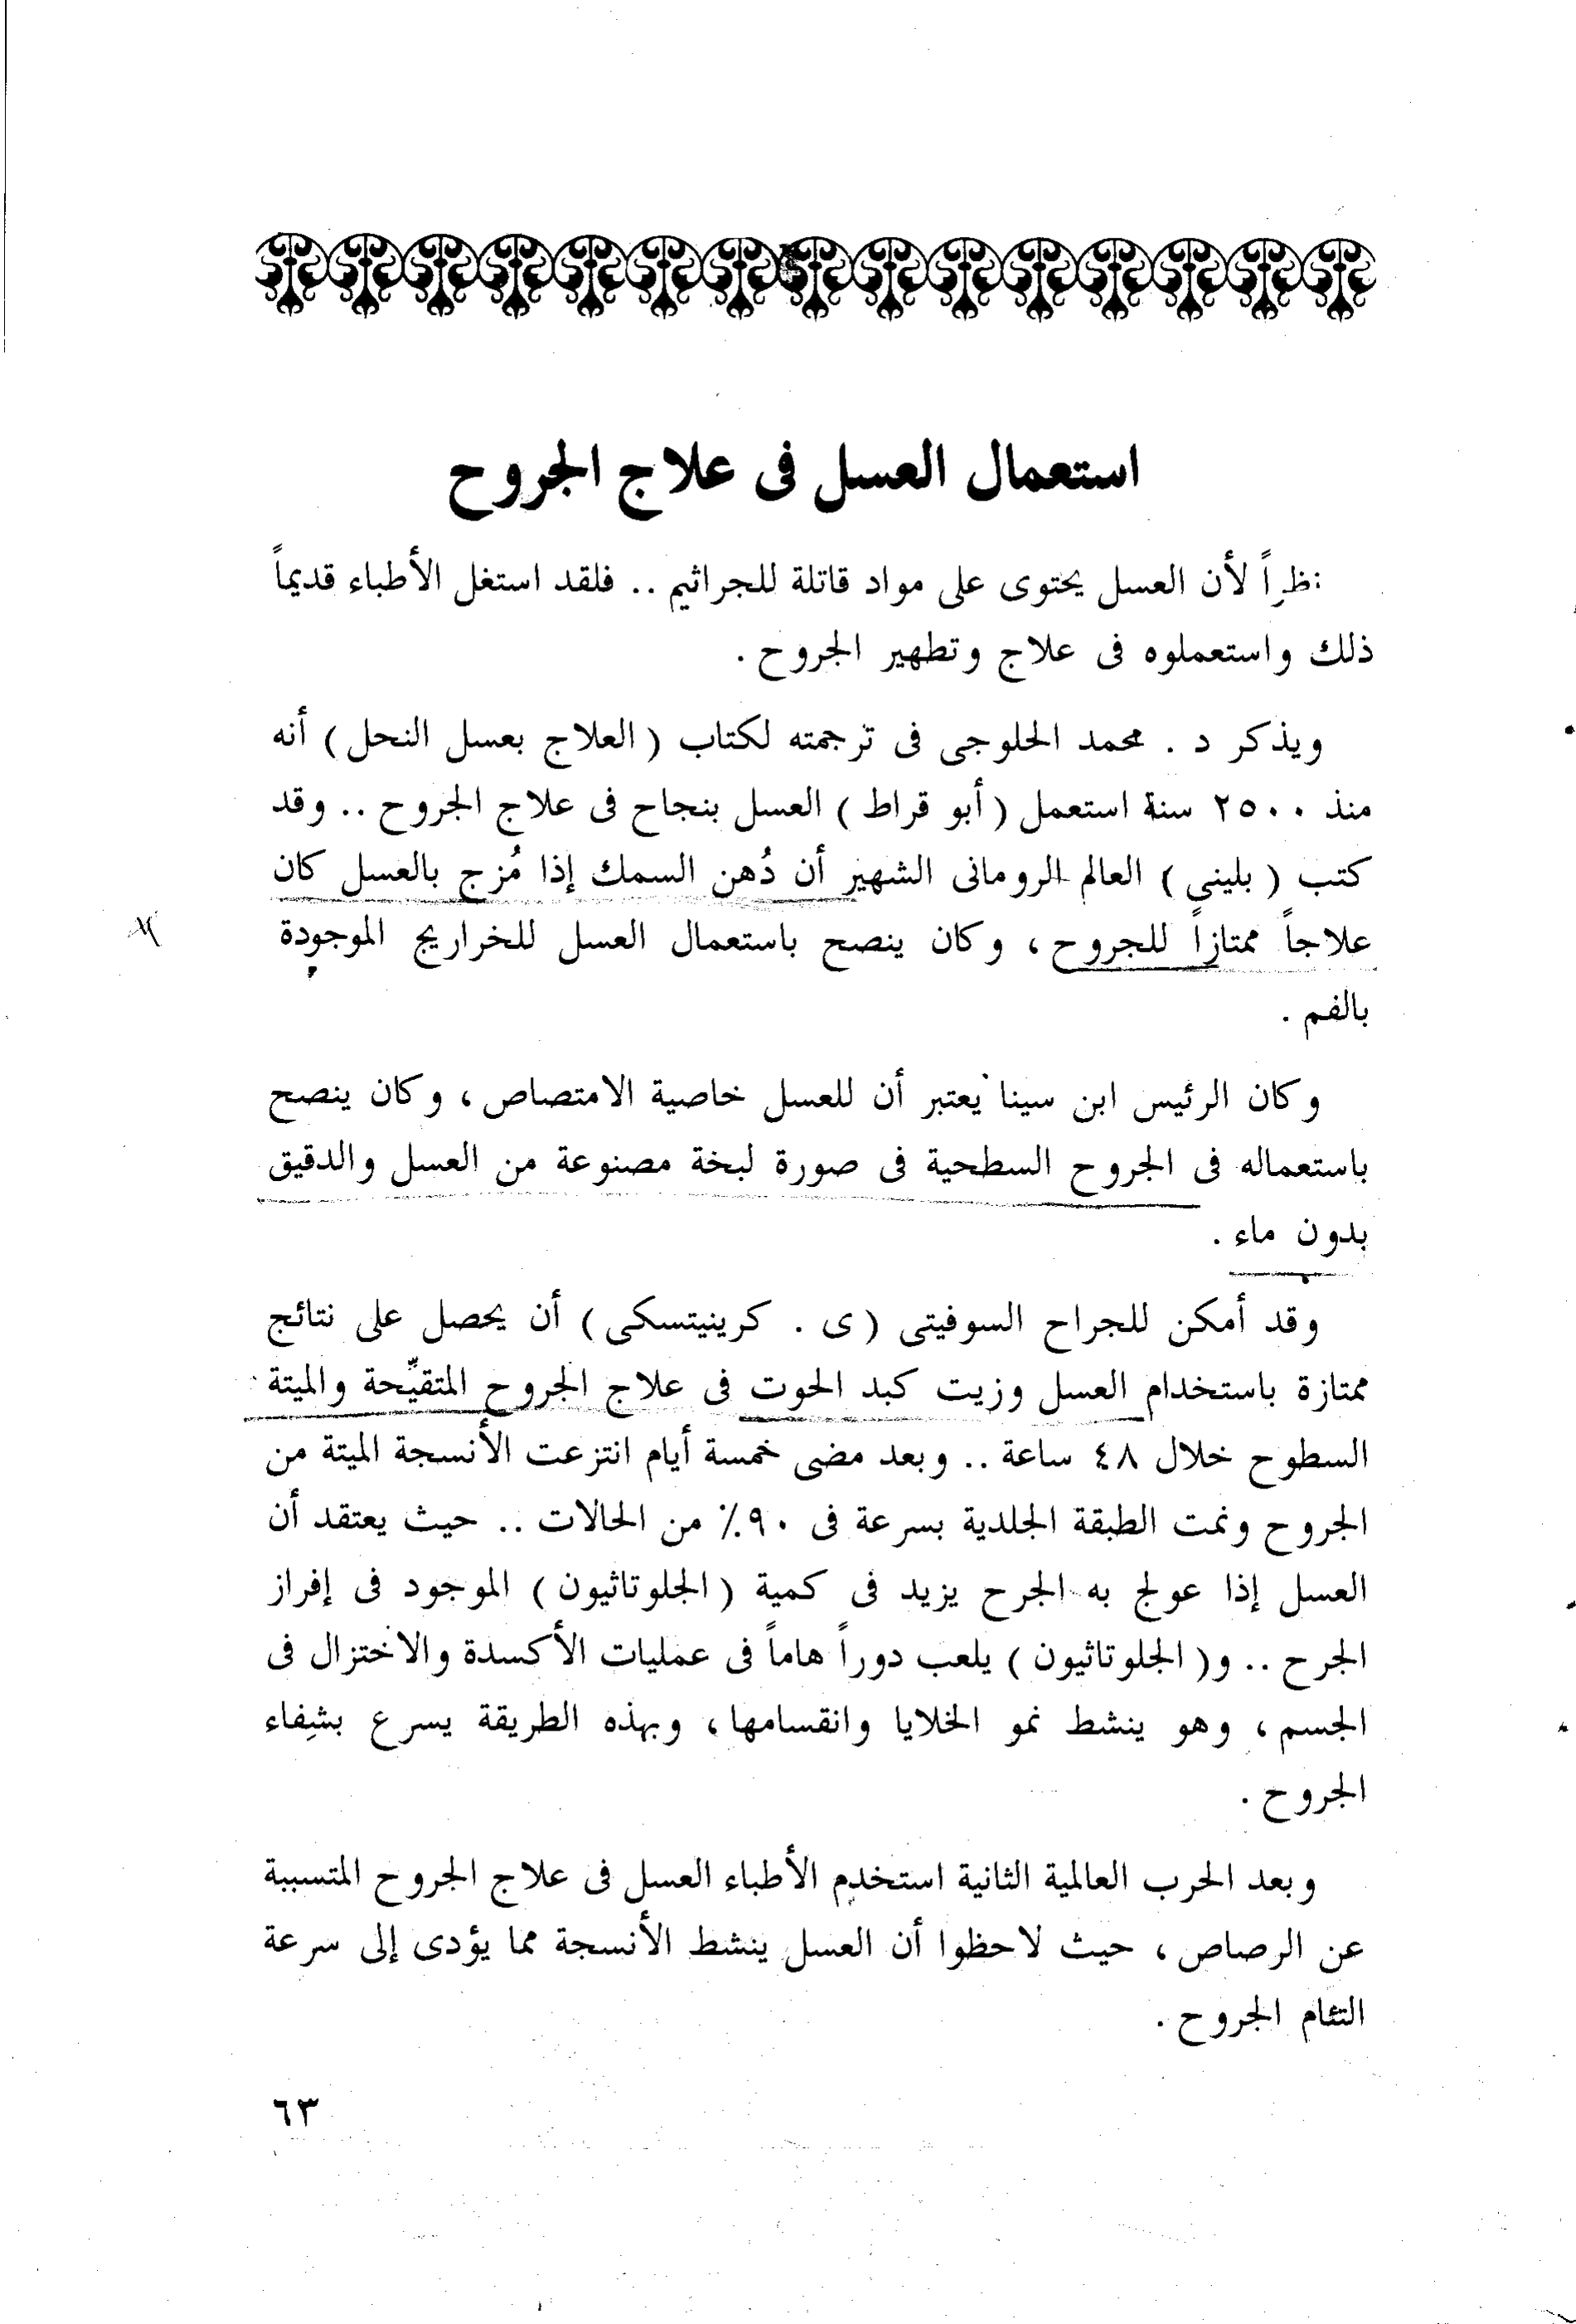 استعمال العسل فى علاج الجروح
نظراً لأن العسل يحتوى على مواد قاتلة للجراثيم .. فلقد استغل الأطباء قديماً
ذلك واستعملوه فى علاج وتطهير الجروح .
ويذكر د . محمد الحلوجى فى ترجمته لكتاب ( العلاج بعسل النحل ) أنه
منذ ٢٥٠٠ سنة استعمل ( أبو قراط ) العسل بنجاح فى علاج الجروح .. وقد
كتب ( بلينى ) العالم الرومانى الشهير أن دُهن السمك إذا مُزج بالعسل كان
علاجاً ممتازاً للجروح ، وكان ينصح باستعمال العسل للخراريج الموجودة
بالفم .
وكان الرئيس ابن سينا يعتبر أن للعسل خاصية الامتصاص ، وكان ينصح
باستعماله فى الجروح السطحية فى صورة لبخة مصنوعة من العسل والدقيق
بدون ماء .
وقد أمكن للجراح السوفيتى ( ى . كرينيتسكى ) أن يحصل على نتائج
ممتازة باستخدام العسل وزيت كبد الحوت فى علاج الجروح المتقيِّحة والميتة
السطوح خلال ٤٨ ساعة .. وبعد مضى خمسة أيام انتزعت الأنسجة الميتة من
الجروح ونمت الطبقة الجلدية بسرعة فى ٩٠٪ من الحالات .. حيث يعتقد أن
العسل إذا عولج به الجرح يزيد فى كمية ( الجلوتاثيون ) الموجود فى إفراز
الجرح .. و( الجلوتاثيون ) يلعب دوراً هاماً فى عمليات الأكسدة والاختزال فى
الجسم ، وهو ينشط نمو الخلايا وانقسامها ، وبهذه الطريقة يسرع بشِفاء
الجروح .
وبعد الحرب العالمية الثانية استخدم الأطباء العسل فى علاج الجروح المتسببة
عن الرصاص ، حيث لاحظوا أن العسل ينشط الأنسجة مما يؤدى إلى سرعة
التئام الجروح .
٦٣